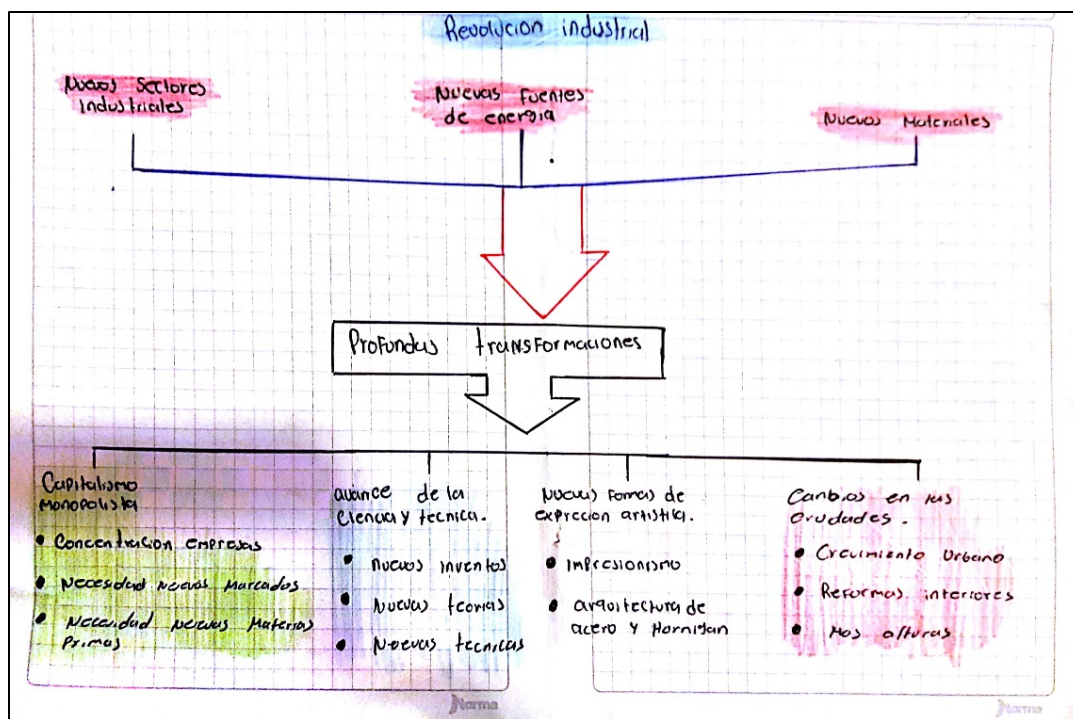 Revolucion industrial
Nuevos Sectores
Industriales
Nuevas Fuentes
de energia
Nuevos Materiales
Profundas transformaciones
Capitalismo
Monopolista.
• Concentracion empresas
• Necesidad Nuevos Marcados
• Necesidad Nuevas Materias
Primas
avance de la
Ciencia y tecnica.
• nuevos inventos
• Nuevas teorias
• Nuevas tecnicas
Nuevas Fomas de
exprecion artistika.
• impresionismo
• arquitectura de
acero y Hornigan
Canbios en las
Crudades.
• Crecimiento Urbano
• Reformas interiores
• Mas alturas
Norma
Norma